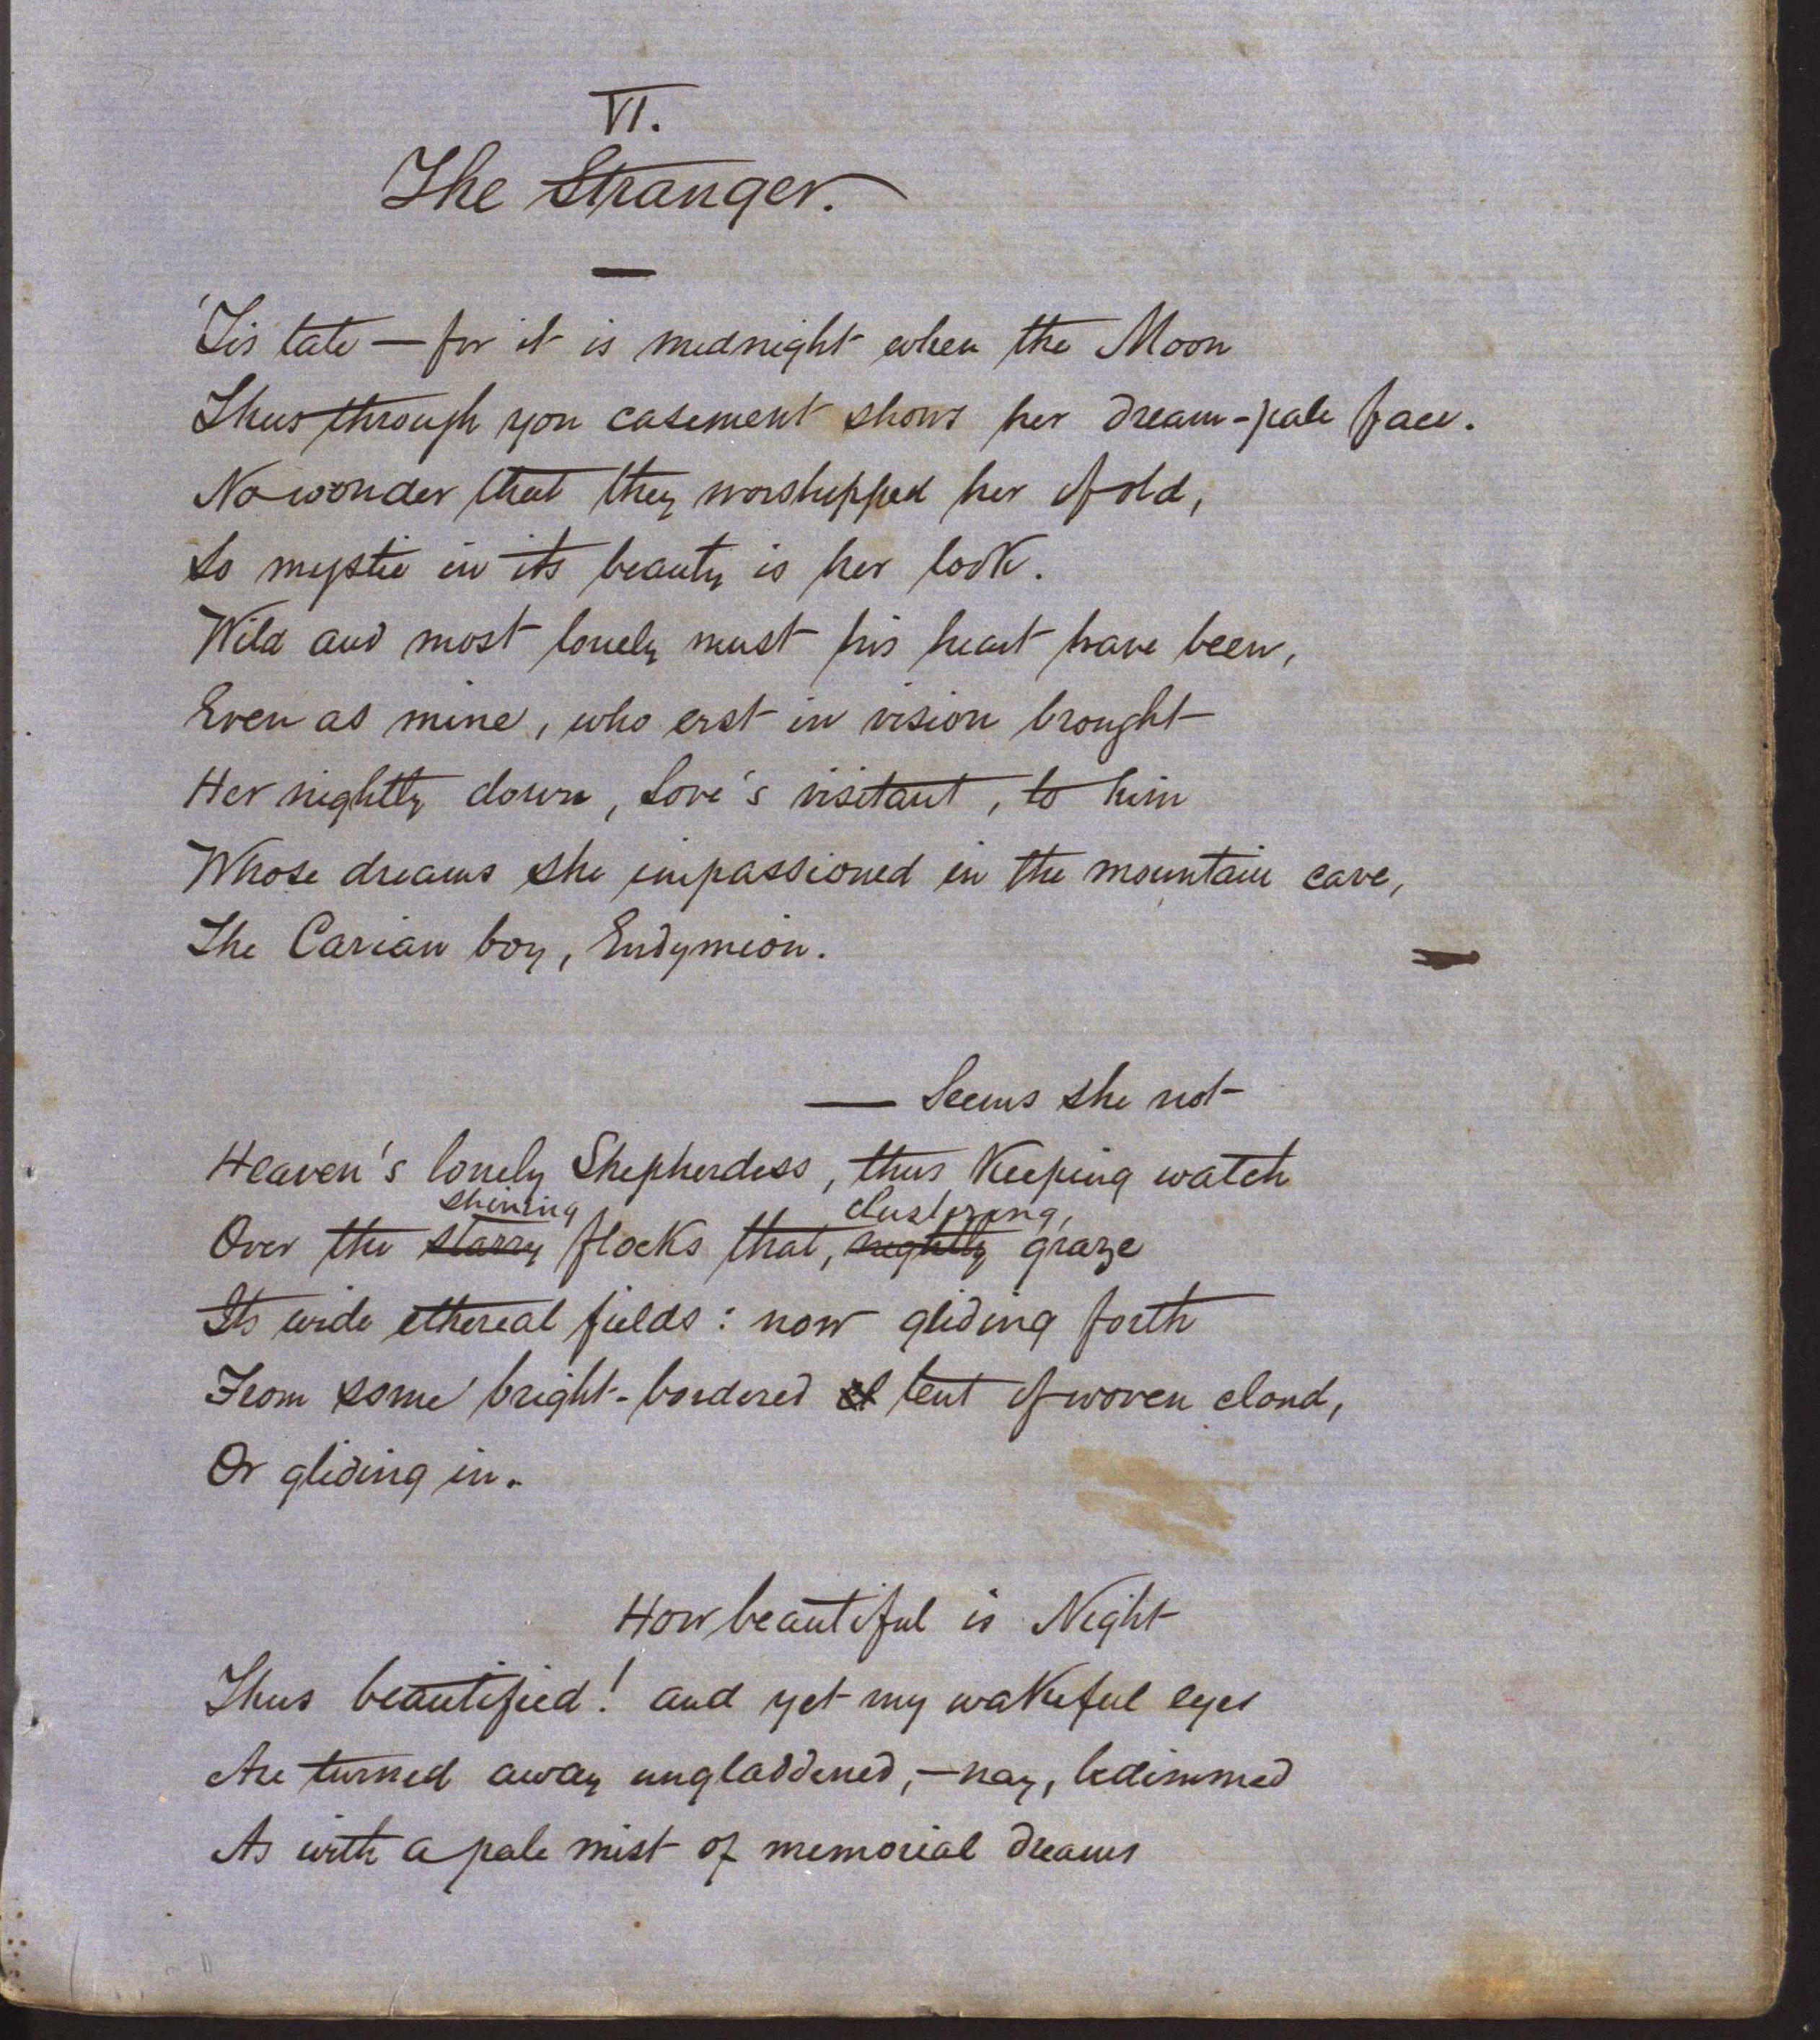 VI.
The Stranger.
'Tis late — for it is midnight when the Moon
Thus through yon casement shows her dream-pale face.
No wonder that they worshipped her of old,
So mystic in its beauty is her look.
Wild and most lonely must his heart have been,
Even as mine, who erst in vision brought
Her nightly down, Love's visitant, to him
Whose dreams she impassioned in the mountain cave,
The Carian boy, Endymion.
— Seems she not
Heaven's lonely Shepherdess, thus keeping watch
shining clustering,
Over the starry flocks that, nightly graze
Its wide ethereal fields: now gliding forth
From some bright-bordered cl tent of woven cloud,
Or gliding in.
How beautiful is Night
Thus beautified! and yet my wakeful eyes
Are turned away ungladdened, — nay, bedimmed
As with a pale mist of memorial dreams